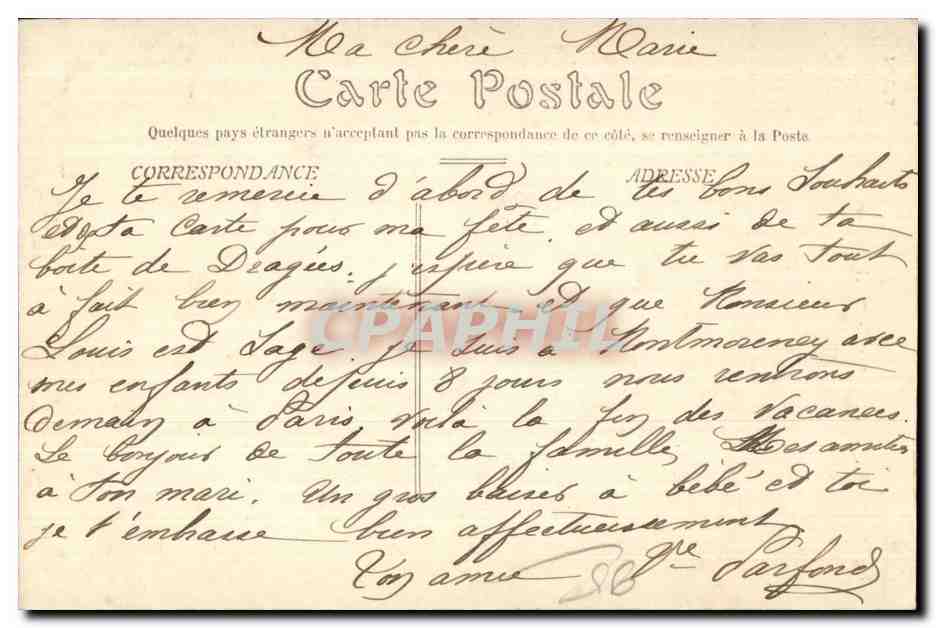 Ma chère Marie
Carte Postale
Quelques pays étrangers n'acceptant pas la correspondance de ce côté, se renseigner à la Poste.
CORRESPONDANCE ADRESSE
Je te remercie d'abord de tes bons souhaits
et de ta carte pour ma fête. et aussi de ta
boite de Dragées. j'espère que tu vas tout
à fait bien maintenant et que Monsieur
Louis est sage. je suis à Montmorency avec
mes enfants depuis 8 jours nous rentrons
demain à Paris voilà la fin des vacances.
Le bonjour de toute la famille, Mes amitiés
à ton mari. Un gros baiser à bébé et toi
je t'embrasse bien affectueusement
Ton amie Vve Parfond
CPAPHIL